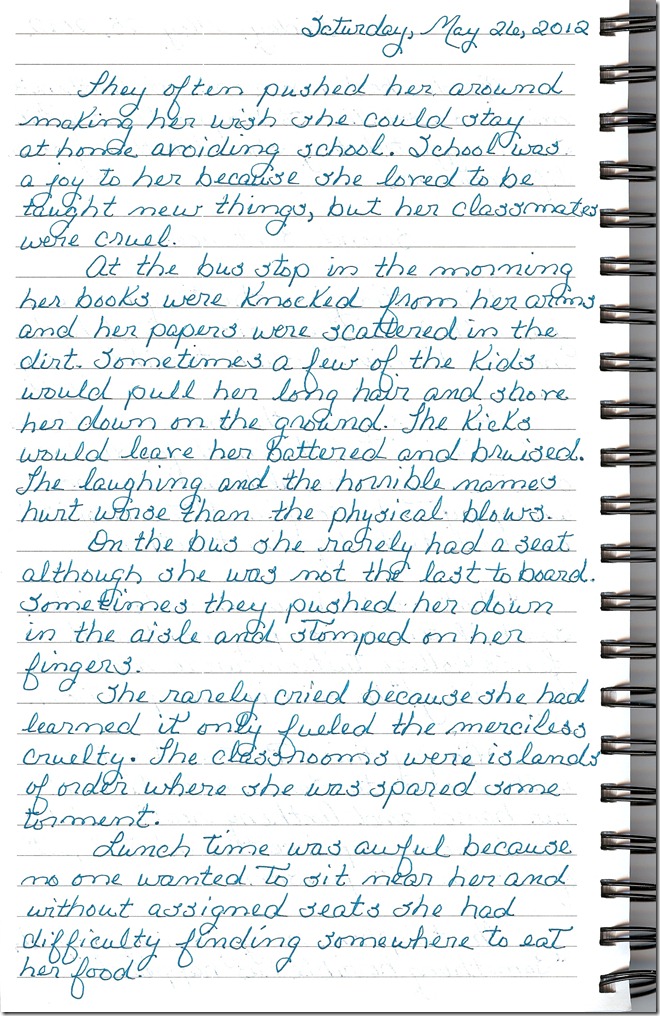 Saturday, May 26, 2012
They often pushed her around
making her wish she could stay
at home avoiding school. School was
a joy to her because she loved to be
taught new things, but her classmates
were cruel.
At the bus stop in the morning
her books were knocked from her arms
and her papers were scattered in the
dirt. Sometimes a few of the kids
would pull her long hair and shove
her down on the ground. The kicks
would leave her battered and bruised.
The laughing and the horrible names
hurt worse than the physical blows.
On the bus she rarely had a seat
although she was not the last to board.
Sometimes they pushed her down
in the aisle and stomped on her
fingers.
She rarely cried because she had
learned it only fueled the merciless
cruelty. The classrooms were islands
of order where she was spared some
torment.
Lunch time was awful because
no one wanted to sit near her and
without assigned seats she had
difficulty finding somewhere to eat
her food.